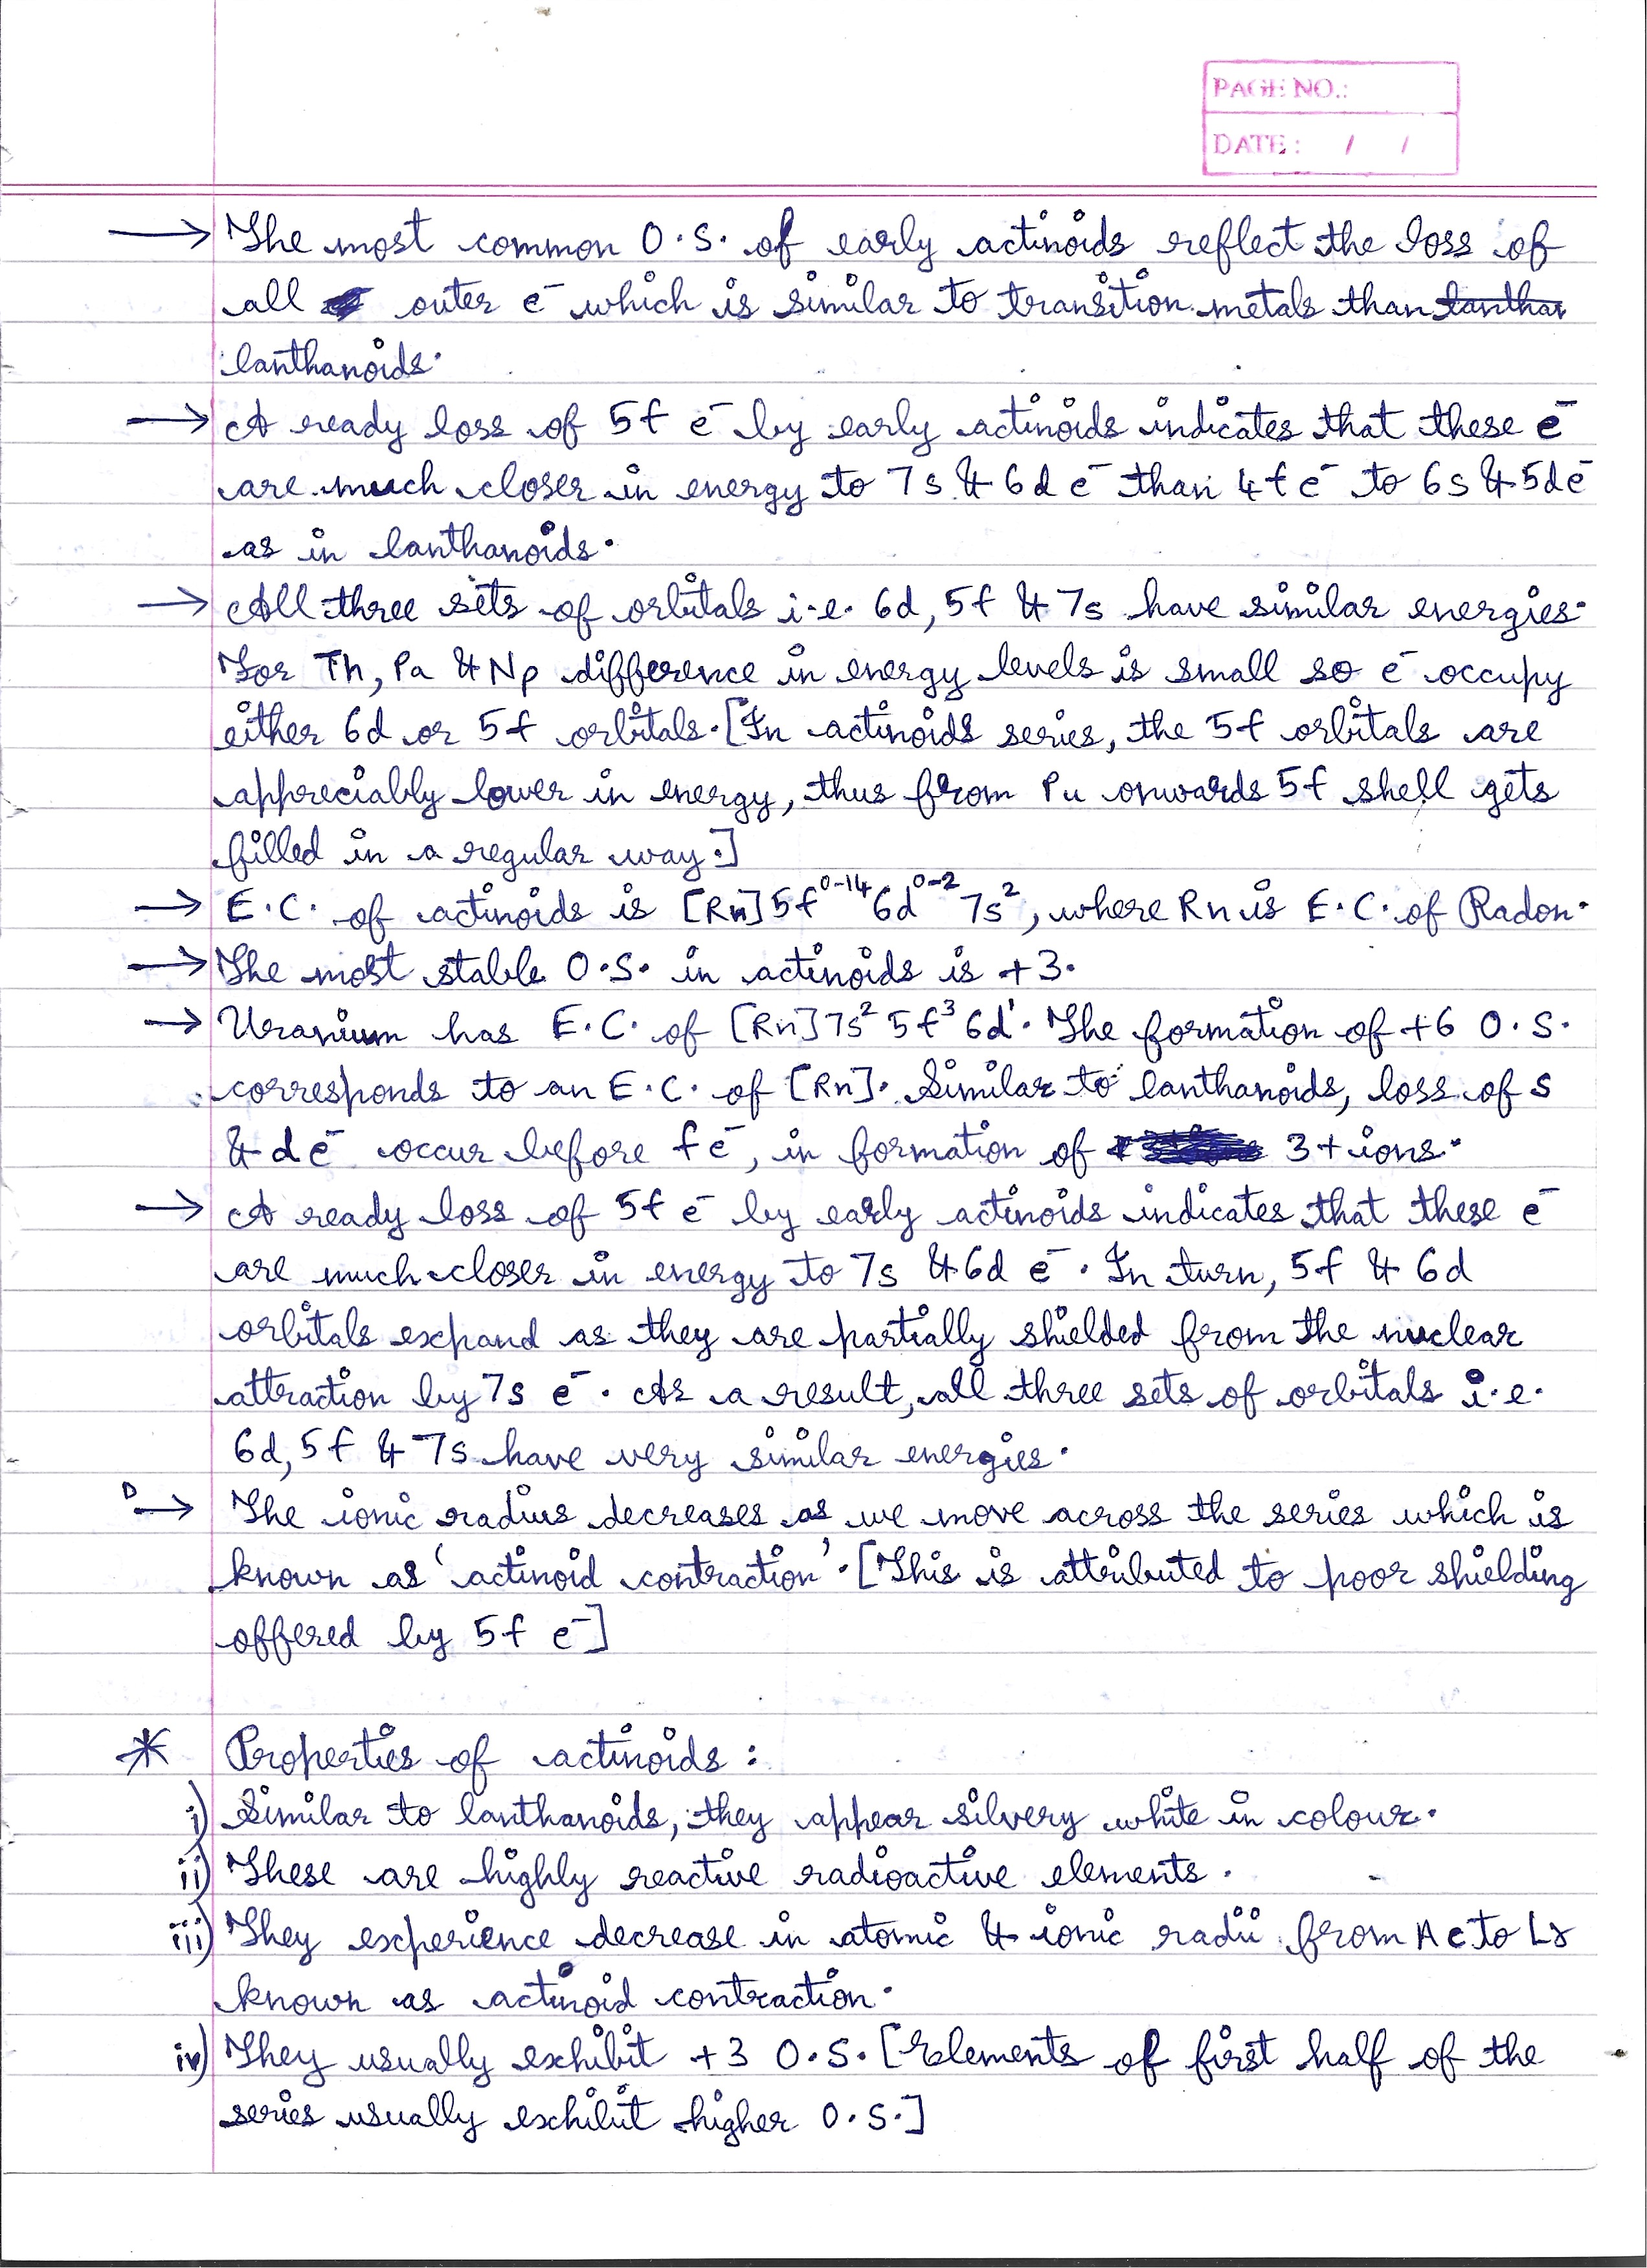 PAGE NO.:
DATE: / /
→ The most common O.S. of early actinoids reflect the loss of
all outer e⁻ which is similar to transition metals than lanthan
lanthanoids.
→ A ready loss of 5f e⁻ by early actinoids indicates that these e⁻
are much closer in energy to 7s & 6d e⁻ than 4f e⁻ to 6s & 5d e⁻
as in lanthanoids.
→ All three sets of orbitals i.e. 6d, 5f & 7s have similar energies.
For Th, Pa & Np difference in energy levels is small so e⁻ occupy
either 6d or 5f orbitals. [In actinoids series, the 5f orbitals are
appreciably lower in energy, thus from Pu onwards 5f shell gets
filled in a regular way.]
→ E.C. of actinoids is [Rn] 5f⁰⁻¹⁴ 6d⁰⁻² 7s², where Rn is E.C. of Radon.
→ The most stable O.S. in actinoids is +3.
→ Uranium has E.C. of [Rn] 7s² 5f³ 6d¹. The formation of +6 O.S.
corresponds to an E.C. of [Rn]. Similar to lanthanoids, loss of s
& d e⁻ occur before f e⁻, in formation of 3+ ions.
→ A ready loss of 5f e⁻ by early actinoids indicates that these e⁻
are much closer in energy to 7s & 6d e⁻. In turn, 5f & 6d
orbitals expand as they are partially shielded from the nuclear
attraction by 7s e⁻. As a result, all three sets of orbitals i.e.
6d, 5f & 7s have very similar energies.
→ The ionic radius decreases as we move across the series which is
known as 'actinoid contraction'. [This is attributed to poor shielding
offered by 5f e⁻]
* Properties of actinoids :
i) Similar to lanthanoids, they appear silvery white in colour.
ii) These are highly reactive radioactive elements.
iii) They experience decrease in atomic & ionic radii from Ac to Lr
known as actinoid contraction.
iv) They usually exhibit +3 O.S. [Elements of first half of the
series usually exhibit higher O.S.]